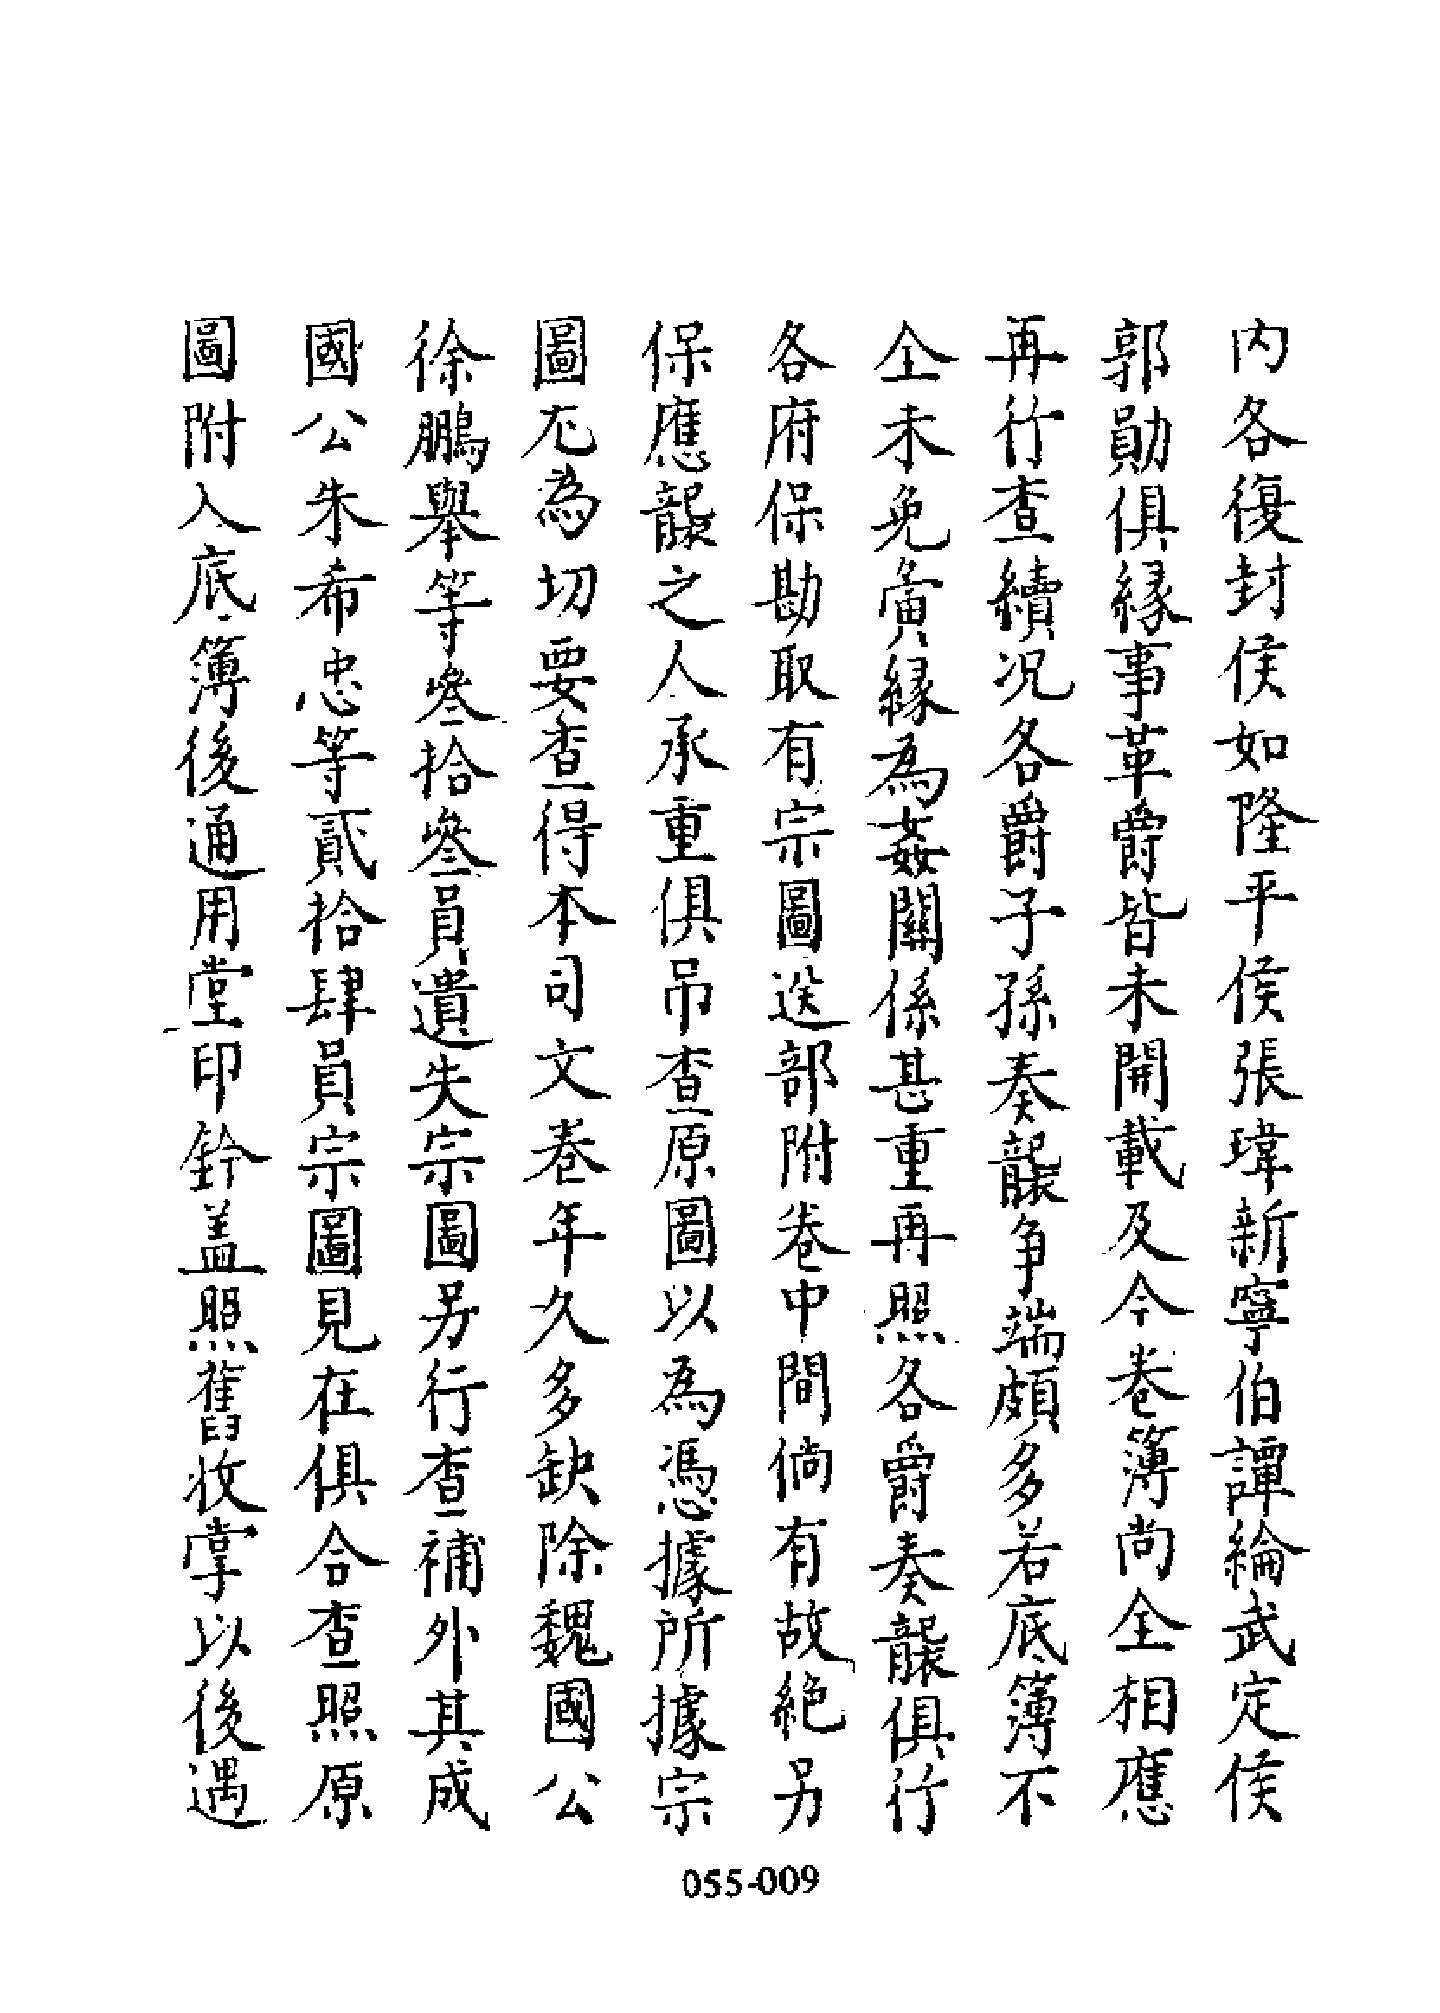 內各復封侯如隆平侯張瑋新寧伯譚綸武定侯
郭勛俱緣事革爵皆未開載及今卷簿尚全相應
再行查續况各爵子孫奏襲爭端頗多若底簿不
全未免夤緣為姦關係甚重再照各爵奏襲俱行
各府保勘取有宗圖送部附卷中間倘有故絕另
保應襲之人承重俱吊查原圖以為憑據所據宗
圖尤為切要查得本司文卷年久多缺除魏國公
徐鵬舉等叄拾叄員遺失宗圖另行查補外其成
國公朱希忠等貳拾肆員宗圖見在俱合查照原
圖附入底簿後通用堂印鈐盖照舊收掌以後遇
055-009